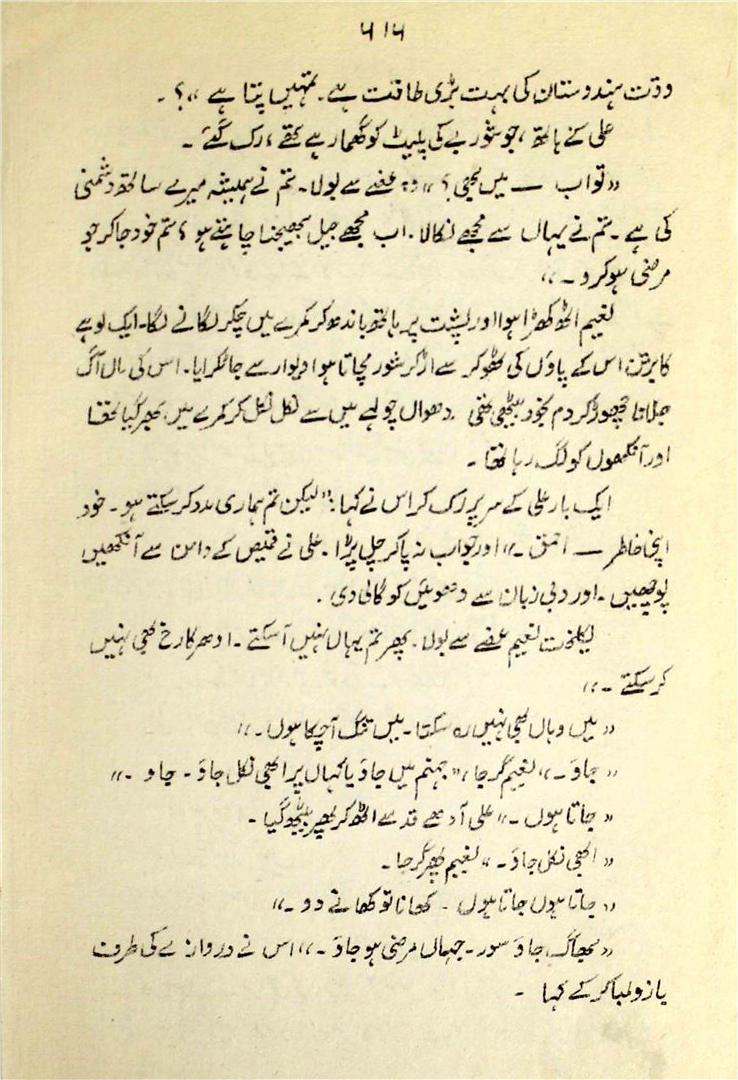 ۴۱۴
وقت ہندوستان کی بہت بڑی طاقت ہے۔ تمہیں پتا ہے ،،؟ ۔
علی کے ہاتھ ، جو شوربے کی پلیٹ کو گھما رہے تھے ، رک گئے ۔
،، تو اب — میں بھی ؟ ،، وہ غصے سے بولا۔ تم نے ہمیشہ میرے ساتھ دشمنی
کی ہے ۔ تم نے یہاں سے مجھے نکالا ۔ اب مجھے جیل بھیجنا چاہتے ہو ؟ تم خود جا کر جو
مرضی ہو کرو ۔ ،،
نعیم اٹھ کھڑا ہوا اور پشت پر ہاتھ باندھ کر کمرے میں چکر لگانے لگا۔ ایک لوہے
کا برتن اس کے پاؤں کی ٹھوکر سے اڑ کر شور مچاتا ہوا دیوار سے جا ٹکرایا۔ اس کی ماں آگ
جلانا چھوڑ کر دم بخود بیٹھی تھی ۔ دھواں چولہے میں سے نکل نکل کر کمرے میں بھر گیا تھا
اور آنکھوں کو لگ رہا تھا ۔
ایک بار علی کے سر پر رک کر اس نے کہا : ،، لیکن تم ہماری مدد کر سکتے ہو ۔ خود
اپنی خاطر — احمق ۔ ،، اور جواب نہ پا کر چل پڑا ۔ علی نے قمیص کے دامن سے آنکھیں
پونچھیں ۔ اور دبی زبان سے دھوئیں کو گالی دی ۔
یکلخت نعیم غصے سے بولا ۔ پھر تم یہاں نہیں آ سکتے ۔ ادھر کا رخ بھی نہیں
کر سکتے ۔ ،،
،، میں وہاں بھی نہیں رہ سکتا ۔ میں تنگ آ چکا ہوں ۔ ،،
،، جاؤ ۔ ،، نعیم گرجا ، ،، جہنم میں جاؤ یا کہاں پر ابھی نکل جاؤ ۔ جاو ۔ ،،
،، جاتا ہوں ۔ ،، علی آدھے قد سے اٹھ کر پھر بیٹھ گیا ۔
،، ابھی نکل جاؤ ۔ ،، نعیم پھر گرجا ۔
،، جاتا ہوں جاتا ہوں ۔ کھانا تو کھانے دو ۔ ،،
،، بھاگ جاؤ سور ۔ جہاں مرضی ہو جاؤ ۔ ،، اس نے دروازے کی طرف
بازو لمبا کر کے کہا ۔